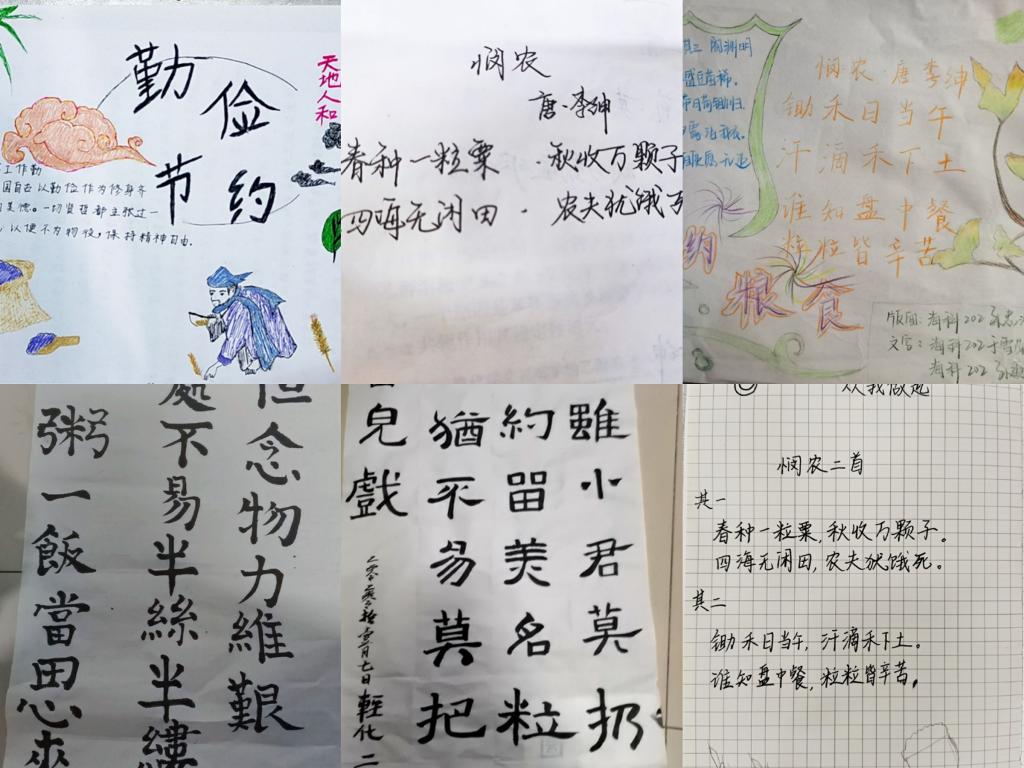 勤俭
节约
天地人和
工作勤
国自古以勤俭作为修身齐
美德。一切贤哲都主张过一
以便不为物役,保持精神自由。
悯农
唐·李绅
春种一粒粟·秋收万颗子
四海无闲田·农夫犹饿
其三 陶渊明
悯农·唐李绅
锄禾日当午
汗滴禾下土
谁知盘中餐
粒粒皆辛苦
约
粮食
版图:海科202
文字:海科202
海科202
但念物力維艱
處不易半絲半縷
粥一飯當田思來
雖小君莫扔
約留美名粒
猶不易莫把
兒戲
輕化二
从我做起
悯农二首
其一
春种一粒粟,秋收万颗子。
四海无闲田,农夫犹饿死。
其二
锄禾日当午,汗滴禾下土。
谁知盘中餐,粒粒皆辛苦。